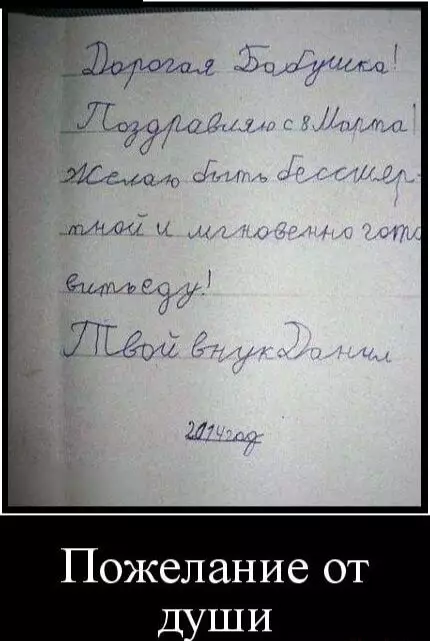 Дорогая Бабушка!
Поздравляю с 8 Марта!
Желаю быть бессмер-
тной и мгновенно гото
вить еду!
Твой внук Данил
2014 год
Пожелание от
души